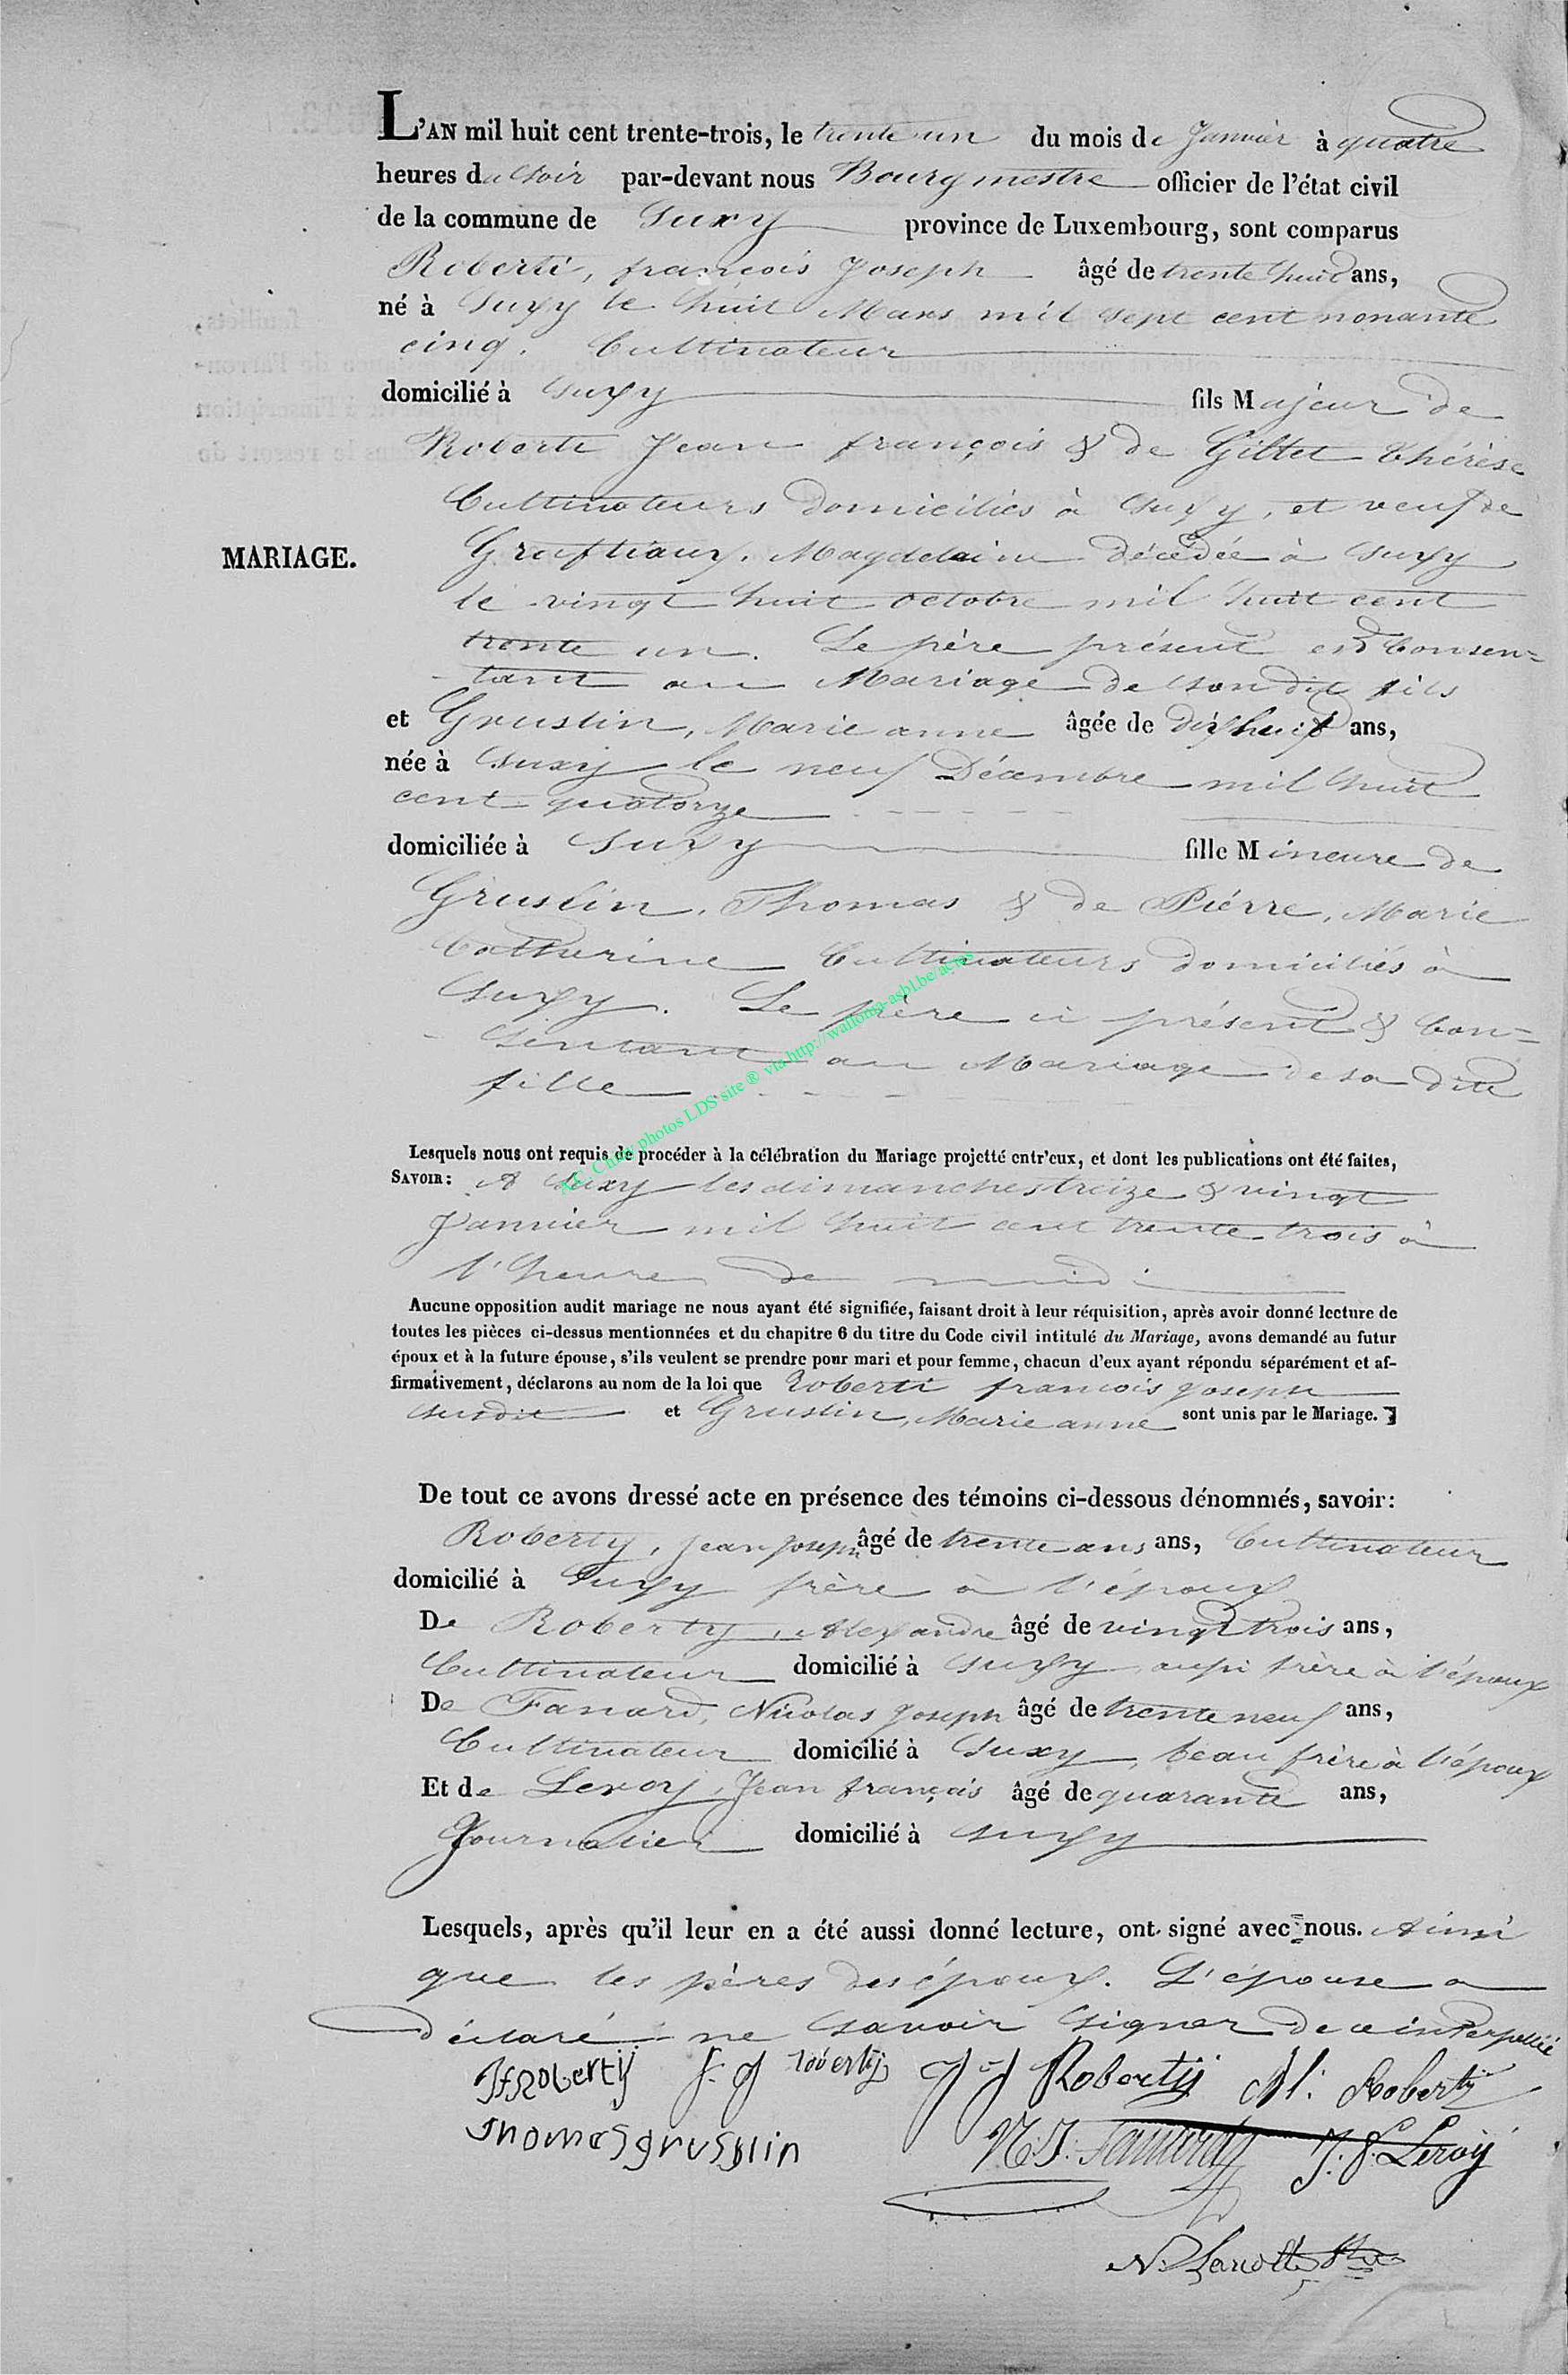 L'AN mil huit cent trente-trois, le trente un du mois de Janvier à quatre
heures du soir par-devant nous Bourgmestre officier de l'état civil
de la commune de Suxy province de Luxembourg, sont comparus
Roberti, françois Joseph âgé de trente huit ans,
né à Suxy le huit Mars mil sept cent nonante
cinq. Cultivateur
domicilié à Suxy fils Majeur de
Roberti Jean françois & de Gillet Thérèse
Cultivateurs domiciliés à Suxy, et veuf de
Magdelaine décédée à Suxy
MARIAGE.
le vingt huit octobre mil huit cent
trente un. Le père présent et Consen=
tant au Mariage de son dit fils
et Gruslin, Marie anne âgée de dix huit ans,
née à Suxy le neuf Décembre mil huit
cent quatorze
domiciliée à Suxy fille Mineure de
Gruslin, Thomas & de Piérre, Marie
Catherine Cultivateurs domiciliés à
Suxy. Le père ci présent & Con=
sentant au Mariage de sa dite
fille
AE. Chiny photos LDS site ® via http://wallonia-asbl.be/actes
Lesquels nous ont requis de procéder à la célébration du Mariage projetté entr'eux, et dont les publications ont été faites,
SAVOIR: A Suxy les dimanches treize & vingt
Janvier mil huit cent trente trois à
l'heure de midi
Aucune opposition audit mariage ne nous ayant été signifiée, faisant droit à leur réquisition, après avoir donné lecture de
toutes les pièces ci-dessus mentionnées et du chapitre 6 du titre du Code civil intitulé du Mariage, avons demandé au futur
époux et à la future épouse, s'ils veulent se prendre pour mari et pour femme, chacun d'eux ayant répondu séparément et af-
firmativement, déclarons au nom de la loi que Roberti françois Joseph
susdit et Gruslin, Marie anne sont unis par le Mariage.
De tout ce avons dressé acte en présence des témoins ci-dessous dénommés, savoir:
Roberty, Jean Joseph âgé de trente ans, ans, Cultivateur
domicilié à Suxy frère à l'époux
De Roberty, Alexandre âgé de vingt trois ans,
Cultivateur domicilié à Suxy aussi frère à l'époux
De Fanard, Nicolas Joseph âgé de trente neuf ans,
Cultivateur domicilié à Suxy, beau frère à l'époux
Et de Leroy, Jean françois âgé de quarante ans,
Journalier domicilié à Suxy
Lesquels, après qu'il leur en a été aussi donné lecture, ont signé avec nous. Ainsi
que les pères des époux. L'épouse a
déclaré ne savoir signer de ce interpellée
JfRoberty f. J roberty J J Roberty Al: Roberty
Thomas gruslin N. J. Fanard J. F. Leroy